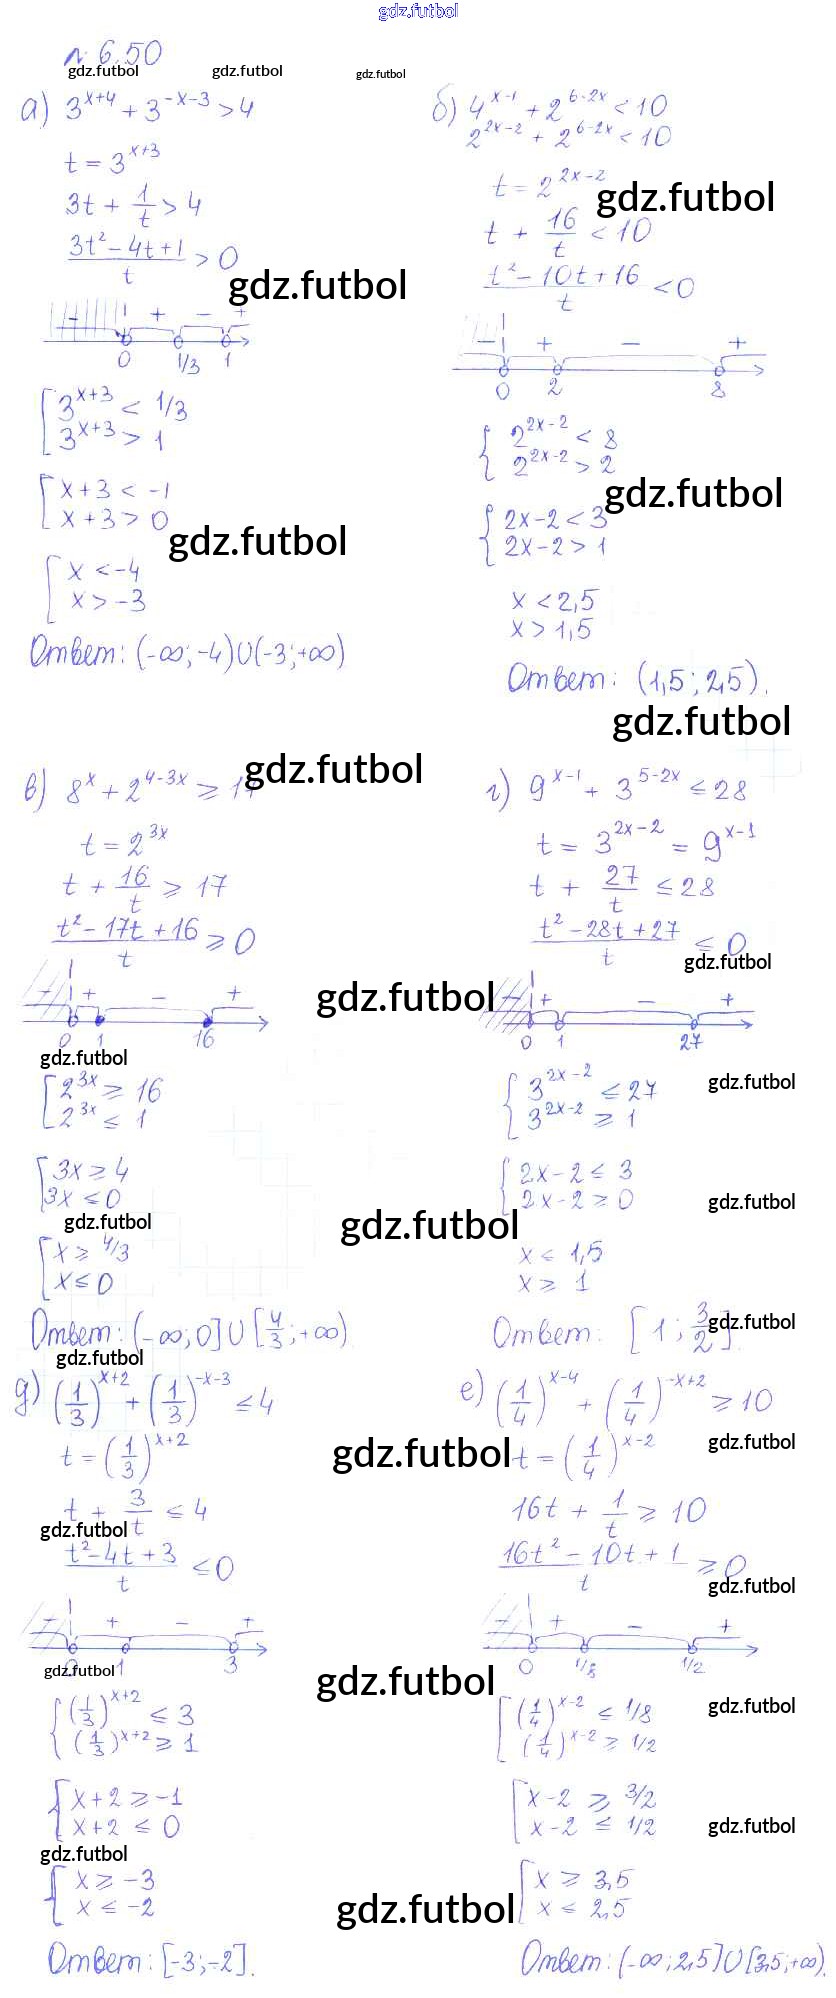 gdz.futbol
№ 6.50
gdz.futbol gdz.futbol gdz.futbol
а) 3^(x+4) + 3^(-x-3) > 4
t = 3^(x+3)
3t + 1/t > 4
(3t² - 4t + 1)/t > 0
gdz.futbol
- + - +
0 1/3 1
[ 3^(x+3) < 1/3
3^(x+3) > 1
[ x + 3 < -1
x + 3 > 0
gdz.futbol
[ x < -4
x > -3
Ответ: (-∞; -4)∪(-3; +∞)
б) 4^(x-1) + 2^(6-2x) < 10
2^(2x-2) + 2^(6-2x) < 10
t = 2^(2x-2)
gdz.futbol
t + 16/t < 10
(t² - 10t + 16)/t < 0
- + - +
0 2 8
{ 2^(2x-2) < 8
2^(2x-2) > 2
gdz.futbol
{ 2x - 2 < 3
2x - 2 > 1
x < 2,5
x > 1,5
Ответ: (1,5; 2,5).
gdz.futbol
в) 8^x + 2^(4-3x) ≥ 17
gdz.futbol
t = 2^(3x)
t + 16/t ≥ 17
(t² - 17t + 16)/t ≥ 0
- + - +
gdz.futbol
0 1 16
gdz.futbol
[ 2^(3x) ≥ 16
2^(3x) ≤ 1
[ 3x ≥ 4
3x ≤ 0
gdz.futbol
gdz.futbol
[ x ≥ 4/3
x ≤ 0
Ответ: (-∞; 0]∪[4/3; +∞).
г) 9^(x-1) + 3^(5-2x) ≤ 28
t = 3^(2x-2) = 9^(x-1)
t + 27/t ≤ 28
(t² - 28t + 27)/t ≤ 0
gdz.futbol
- + - +
0 1 27
{ 3^(2x-2) ≤ 27
3^(2x-2) ≥ 1
gdz.futbol
{ 2x - 2 ≤ 3
2x - 2 ≥ 0
gdz.futbol
x ≤ 1,5
x ≥ 1
Ответ: [1; 3/2].
gdz.futbol
gdz.futbol
д) (1/3)^(x+2) + (1/3)^(-x-3) ≤ 4
t = (1/3)^(x+2)
gdz.futbol
t + 3/t ≤ 4
gdz.futbol
(t² - 4t + 3)/t ≤ 0
- + - +
0 1 3
gdz.futbol
gdz.futbol
{ (1/3)^(x+2) ≤ 3
(1/3)^(x+2) ≥ 1
{ x + 2 ≥ -1
x + 2 ≤ 0
gdz.futbol
{ x ≥ -3
x ≤ -2
gdz.futbol
Ответ: [-3; -2].
е) (1/4)^(x-4) + (1/4)^(-x+2) ≥ 10
t = (1/4)^(x-2)
gdz.futbol
16t + 1/t ≥ 10
(16t² - 10t + 1)/t ≥ 0
gdz.futbol
- + - +
0 1/8 1/2
[ (1/4)^(x-2) ≤ 1/8
(1/4)^(x-2) ≥ 1/2
gdz.futbol
[ x - 2 ≥ 3/2
x - 2 ≤ 1/2
gdz.futbol
[ x ≥ 3,5
x ≤ 2,5
Ответ: (-∞; 2,5]∪[3,5; +∞).